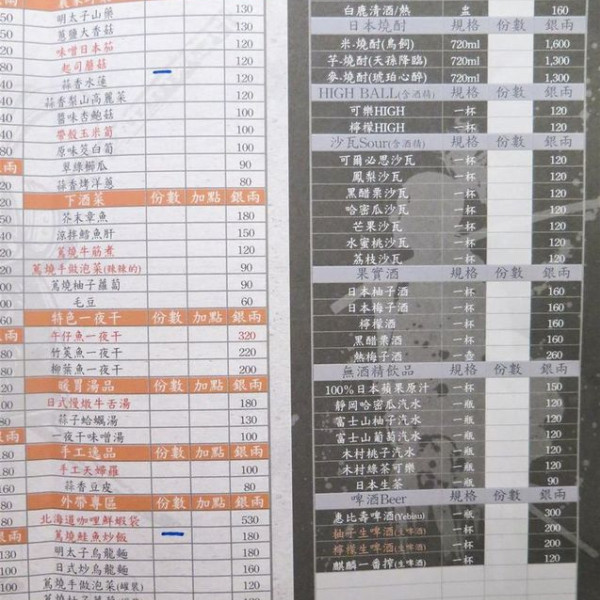 明太子山藥 130
蔥鹽大香菇 120
味噌日本茄 120
起司蘑菇 120
蒜香水蓮 120
蒜香梨山高麗菜 120
醬味杏鮑菇 100
帶殼玉米筍 100
原味茭白筍 100
翠綠櫛瓜 90
蒜香烤洋蔥 80
下酒菜 份數 加點 銀兩
芥末章魚 180
涼拌鱈魚肝 150
蔦燒牛筋煮 120
蔦燒手做泡菜(辣辣的) 90
蔦燒柚子蘿蔔 90
毛豆 60
特色一夜干 份數 加點 銀兩
午仔魚一夜干 320
竹筴魚一夜干 220
柳葉魚一夜干 200
暖胃湯品 份數 加點 銀兩
日式慢燉牛舌湯 180
蒜子蛤蠣湯 130
一夜干味噌湯 100
手工逸品 份數 加點 銀兩
手工天婦羅 100
蒜香豆皮 80
外帶專區 份數 加點 銀兩
北海道咖哩鮮蝦袋 530
蔦燒鮭魚炒飯 180
明太子烏龍麵 180
日式炒烏龍麵 160
蔦燒手做泡菜(罐裝) 120
白鹿清酒/熱 盅 160
日本燒酎 規格 份數 銀兩
米-燒酎(鳥飼) 720ml 1,600
芋-燒酎(天孫降臨) 720ml 1,300
麥-燒酎(琥珀心醉) 720ml 1,300
HIGH BALL(含酒精) 規格 份數 銀兩
可樂HIGH 一杯 120
檸檬HIGH 一杯 120
沙瓦Sour(含酒精) 規格 份數 銀兩
可爾必思沙瓦 一杯 120
鳳梨沙瓦 一杯 120
黑醋栗沙瓦 一杯 120
哈密瓜沙瓦 一杯 120
芒果沙瓦 一杯 120
水蜜桃沙瓦 一杯 120
荔枝沙瓦 一杯 120
果實酒 規格 份數 銀兩
日本柚子酒 一杯 160
日本梅子酒 一杯 160
檸檬酒 一杯 160
黑醋栗酒 一杯 160
熱梅子酒 一壺 260
無酒精飲品 規格 份數 銀兩
100%日本蘋果原汁 一杯 150
靜岡哈密瓜汽水 一瓶 120
富士山柚子汽水 一瓶 120
富士山葡萄汽水 一瓶 120
木村桃子汽水 一瓶 120
木村綠茶可樂 一瓶 120
日本生茶 一瓶 90
啤酒Beer 規格 份數 銀兩
惠比壽啤酒(Yebisu) 一瓶 300
柚子生啤酒(生啤酒) 一杯 200
檸檬生啤酒(生啤酒) 一杯 200
麒麟一番搾(生啤酒) 一杯 120